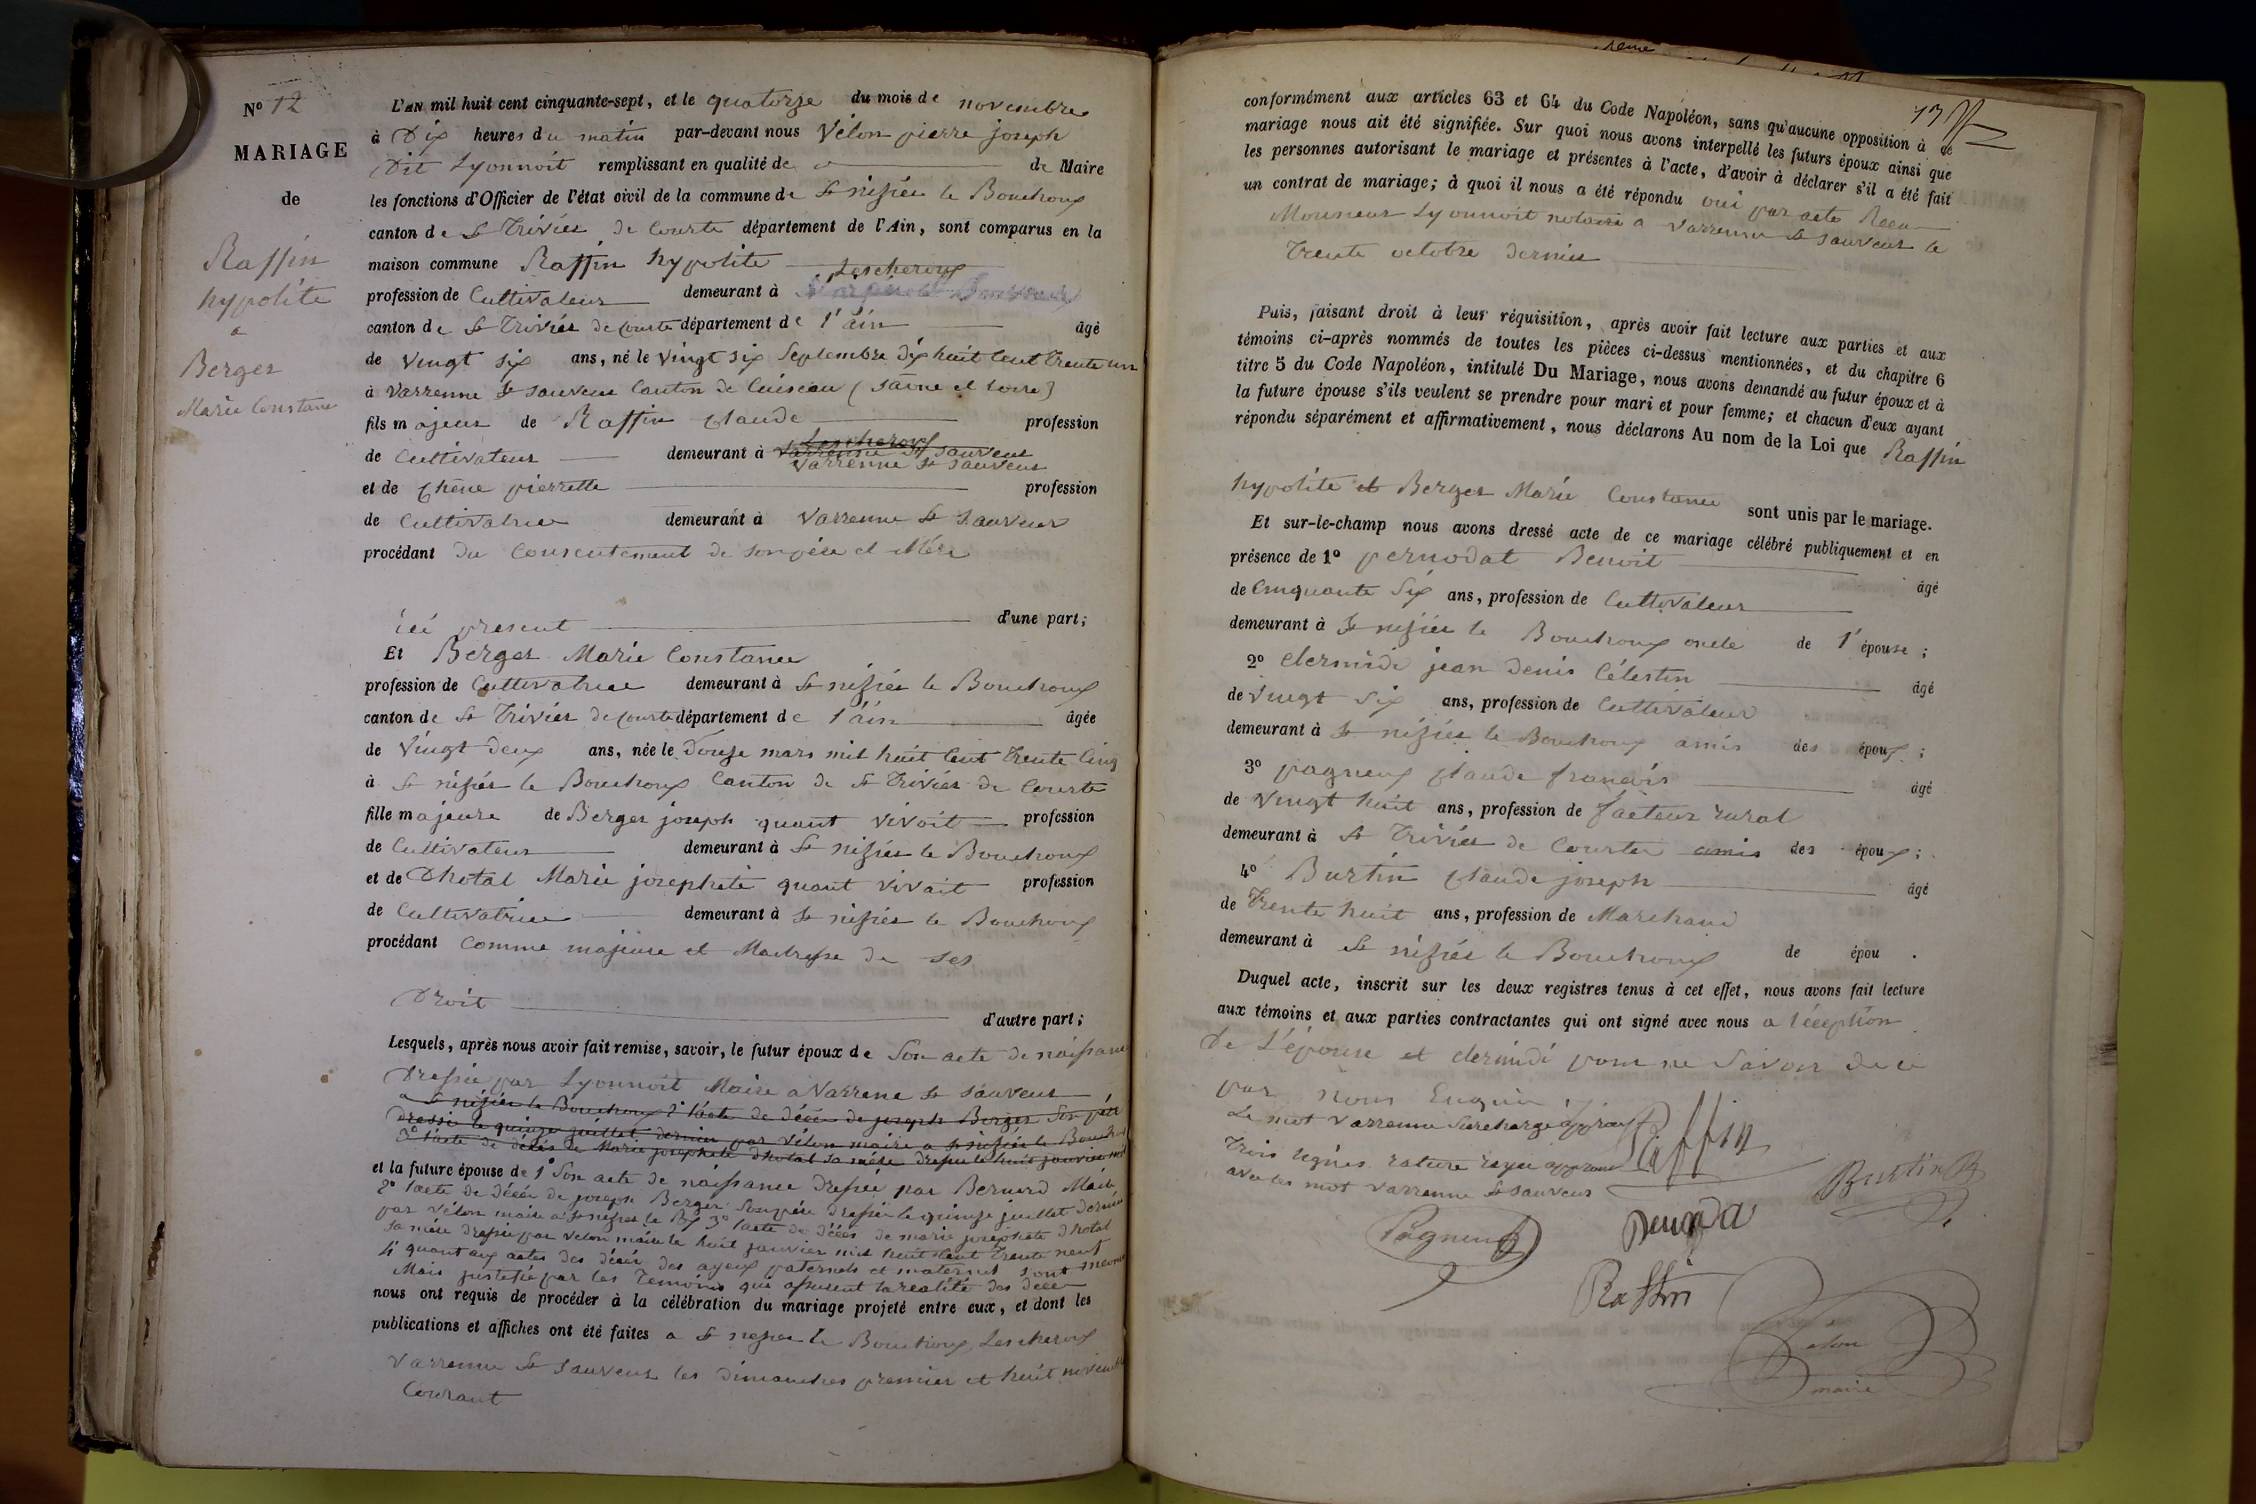 N° 12
MARIAGE
de
Raffin
hypolite
a
Berger
Marie Constance
L'AN mil huit cent cinquante-sept, et le quatorze du mois de novembre
à Dix heures du matin par-devant nous Vélon pierre joseph
Dit Lyonnoit remplissant en qualité de de Maire
les fonctions d'Officier de l'état civil de la commune de St nisiér le Bouchoux
canton de St Triviér de Courte département de l'Ain, sont comparus en la
maison commune Raffin hypolite
Lescheroux
profession de Cultivateur demeurant à
canton de St Triviér de Courte département de l'ain âgé
de vingt six ans, né le vingt six Septembre dix huit Cent trente un
à Varrenne St Sauveur Canton de Cuiseau (Saône et Loire)
fils majeur de Raffin Claude profession
de Cultivateur demeurant à Lescheroux Varrenne St Sauveur
Varrenne St Sauveur
et de Chêne pierrette profession
de Cultivatrice demeurant à Varrenne St Sauveur
procédant du Consentement de son père et Mère
ici present d'une part;
Et Berger Marie Constance
profession de Cultivatrice demeurant à St nisiér le Bouchoux
canton de St Triviér de Courte département de l'ain âgée
de Vingt deux ans, née le Douze mars mil huit Cent trente Cinq
à St nisiér le Bouchoux Canton de St Triviér de Courte
fille majeure de Berger joseph quant vivoit profession
de Cultivateur demeurant à St nisiér le Bouchoux
et de Dhotal Marie josephete quant vivait profession
de Cultivatrice demeurant à St nisiér le Bouchoux
procédant Comme majeure et Maitresse de ses
Droit d'autre part;
Lesquels, après nous avoir fait remise, savoir, le futur époux de Son acte de naissance
Dressée par Lyonnoit Maire a Varrene St Sauveur
a St nisiér le Bouchoux 2° l'acte de décés de joseph Berger Son père
Dressé le quinze juillet dernier par Vélon maire a St nisiér le Bouchoux
3° l'acte de décés de Marie josephete dhotal sa mère dressé le huit janvier mil
et la future épouse de 1° Son acte de naissance Dressée par Bernard Maire
2° l'acte de décés de joseph Berger Son père dressée le quinze juillet dernier
par Vélon maire a St nisier le Bx 3° l'acte de décés de marie josephete dhotal
sa mère dressée par Vélon maire le huit janvier mil huit Cent trente neuf
4° quant aux actes des décés des ayeux paternels et maternels sont
Mais justifié par les temoins qui assurent la réalité des décés
nous ont requis de procéder à la célébration du mariage projeté entre eux, et dont les
publications et affiches ont été faites a St nisier le Bouchoux, Lescheroux
Varrenne St Sauveur les dimanches premier et huit novembre
Courant
13
conformément aux articles 63 et 64 du Code Napoléon, sans qu'aucune opposition à ce
mariage nous ait été signifiée. Sur quoi nous avons interpellé les futurs époux ainsi que
les personnes autorisant le mariage et présentes à l'acte, d'avoir à déclarer s'il a été fait
un contrat de mariage; à quoi il nous a été répondu oui par acte Recu
Monsieur Lyonnoit notaire a Varrenne St Sauveur le
trente octobre dernier
Puis, faisant droit à leur réquisition, après avoir fait lecture aux parties et aux
témoins ci-après nommés de toutes les pièces ci-dessus mentionnées, et du chapitre 6
titre 5 du Code Napoléon, intitulé Du Mariage, nous avons demandé au futur époux et à
la future épouse s'ils veulent se prendre pour mari et pour femme; et chacun d'eux ayant
répondu séparément et affirmativement, nous déclarons Au nom de la Loi que Raffin
hypolite et Berger Marie Constance sont unis par le mariage.
Et sur-le-champ nous avons dressé acte de ce mariage célébré publiquement et en
présence de 1° pernodat Benoit âgé
de Cinquante Six ans, profession de Cultivateur
demeurant à St nisiér le Bouchoux oncle de l'épouse;
2° Clermidi jean denis Célestin âgé
de vingt six ans, profession de Cultivateur
demeurant à St nisiér le Bouchoux amis des époux;
3° pagneux Claude francois âgé
de vingt huit ans, profession de facteur rural
demeurant à St Triviér de Courte amis des époux;
4° Burtin Claude joseph âgé
de trente huit ans, profession de Marchand
demeurant à St nisiér le Bouchoux de épou .
Duquel acte, inscrit sur les deux registres tenus à cet effet, nous avons fait lecture
aux témoins et aux parties contractantes qui ont signé avec nous a l'éception
de L'épouse et clermidi pour ne Savoir de ce
par nous Enquis
Le mot Varrenne Surchargé approuvé
Trois lignes rature rayee approuvé
avec les mot Varrenne St Sauveur
Raffin
Burtin
Pagneux
Raffin
Vélon
maire